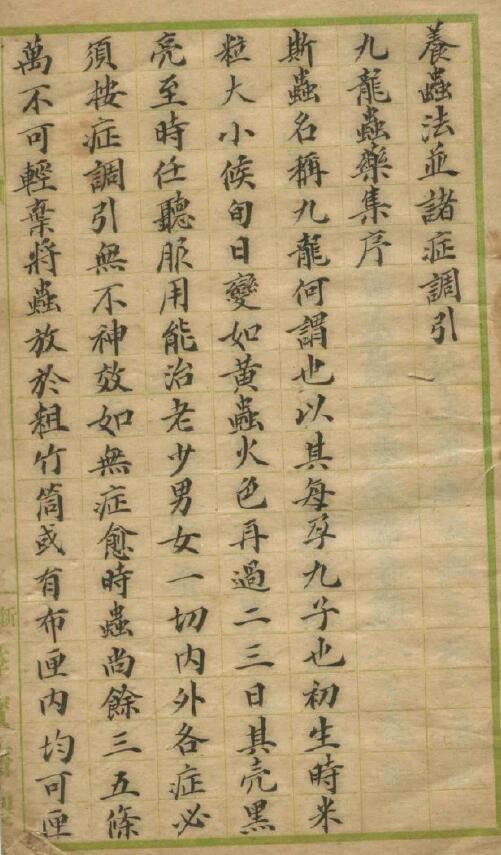 養蟲法並諸症調引
九龍蟲藥集序
斯蟲名稱九龍何謂也以其每孕九子也初生時米
粒大小候旬日變如黃蟲火色再過二三日其壳黑
亮至時任聽服用能治老少男女一切內外各症必
須按症調引無不神效如無症愈時蟲尚餘三五條
萬不可輕棄將蟲放於粗竹筒或有布匣內均可匣